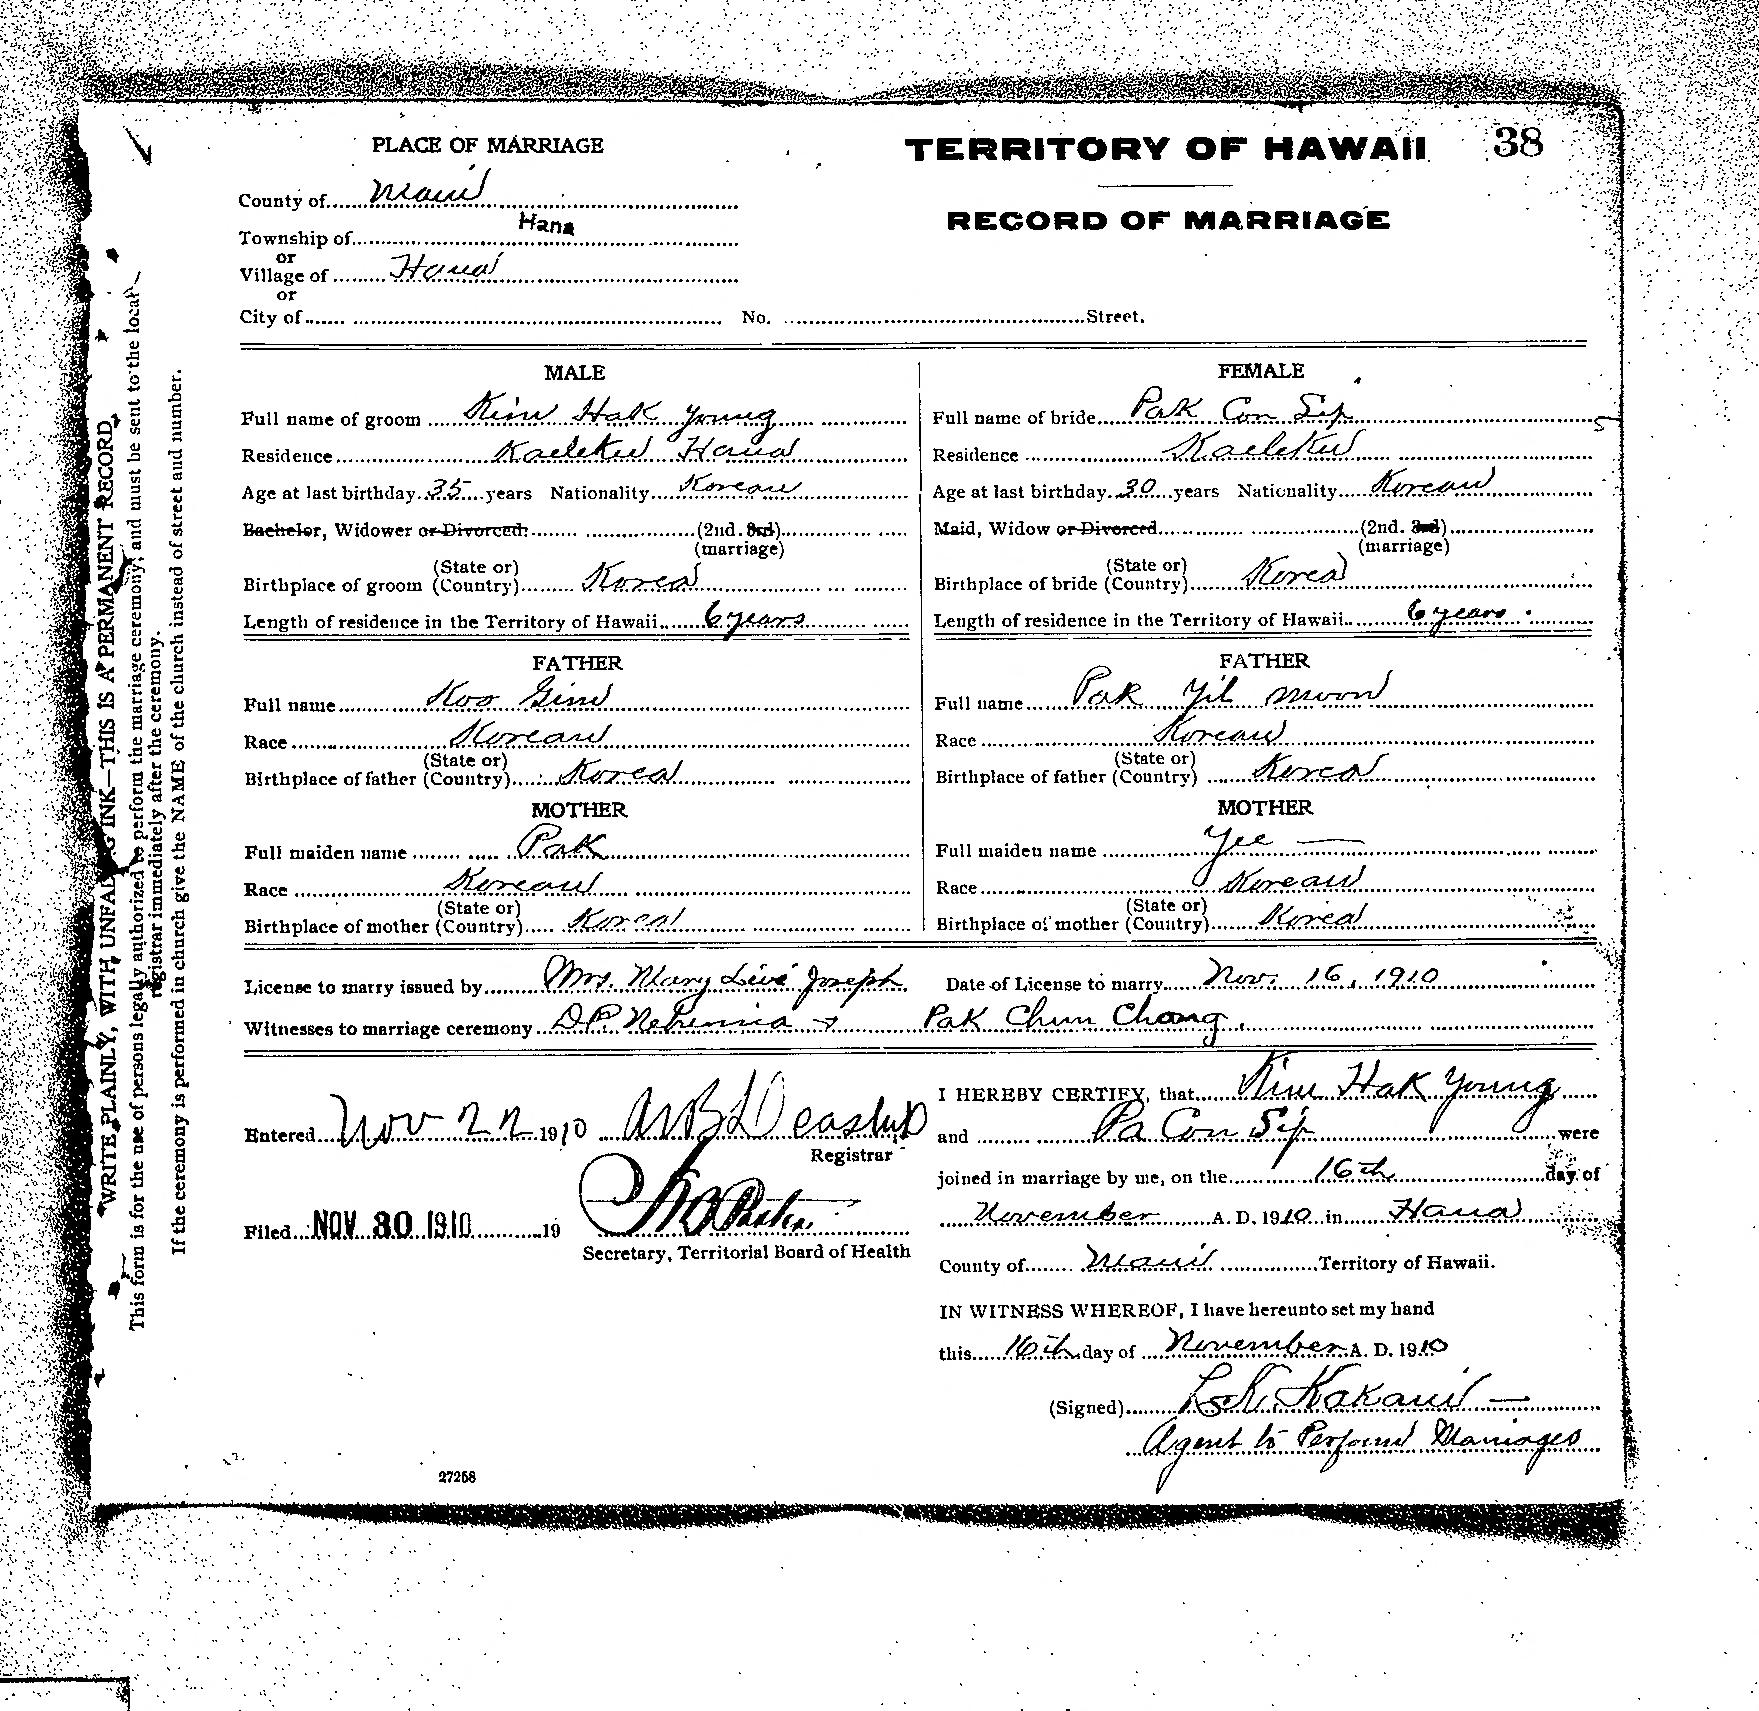 PLACE OF MARRIAGE
TERRITORY OF HAWAII 38
RECORD OF MARRIAGE
County of Maui
Township of Hana
or
Village of Hana
or
City of No. Street.
MALE
Full name of groom Kim Hak Young
Residence Kaeleku Hana
Age at last birthday 35 years Nationality Korean
Bachelor, Widower or Divorced. (2nd. 3rd)
(marriage)
(State or)
Birthplace of groom (Country) Korea
Length of residence in the Territory of Hawaii 6 years
FEMALE
Full name of bride Pak Con Sip
Residence Kaeleku
Age at last birthday 30 years Nationality Korean
Maid, Widow or Divorced (2nd. 3rd)
(marriage)
(State or)
Birthplace of bride (Country) Korea
Length of residence in the Territory of Hawaii 6 years.
FATHER
Full name Koo Gim
Race Korean
(State or)
Birthplace of father (Country) Korea
MOTHER
Full maiden name Pak
Race Korean
(State or)
Birthplace of mother (Country) Korea
FATHER
Full name Pak Yil Moon
Race Korean
(State or)
Birthplace of father (Country) Korea
MOTHER
Full maiden name Yee —
Race Korean
(State or)
Birthplace of mother (Country) Korea
License to marry issued by Mrs. Mary Joseph Date of License to marry Nov. 16, 1910
Witnesses to marriage ceremony D.P. Nehemia + Pak Chun Chang.
Entered Nov 22 1910
Registrar
Filed NOV 30 1910 19
Secretary, Territorial Board of Health
I HEREBY CERTIFY, that Kim Hak Young
and Pa Con Sip were
joined in marriage by me, on the 16th day of
November A. D. 1910 in Hana
County of Maui Territory of Hawaii.
IN WITNESS WHEREOF, I have hereunto set my hand
this 16th day of November A. D. 1910
(Signed) L.K. Kakani —
Agent to Perform Marriages
27258
WRITE PLAINLY, WITH UNFADING INK—THIS IS A PERMANENT RECORD
This form is for the use of persons legally authorized to perform the marriage ceremony, and must be sent to the local
registrar immediately after the ceremony.
If the ceremony is performed in church give the NAME of the church instead of street and number.